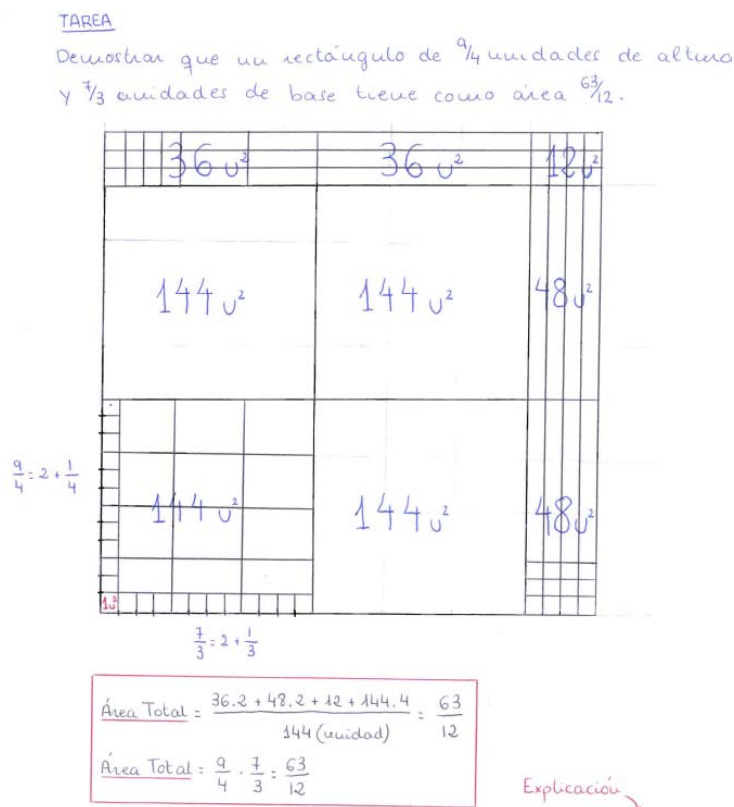 TAREA
Demostrar que un rectángulo de 9/4 unidades de altura
y 7/3 unidades de base tiene como área 63/12.
36 u² 36 u² 12 u²
144 u² 144 u² 48 u²
9/4 = 2 + 1/4
144 u² 144 u² 48 u²
1u²
7/3 = 2 + 1/3
Área Total = (36.2 + 48.2 + 12 + 144.4) / 144 (unidad) = 63/12
Área Total = 9/4 · 7/3 = 63/12
Explicación